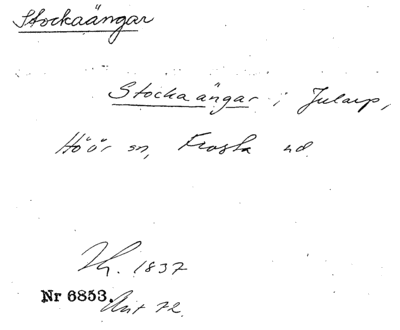 Stockaängar
Stockaängar i Jularp,
Höör sn, Frosta hd
1837
Nr 6853.
72.